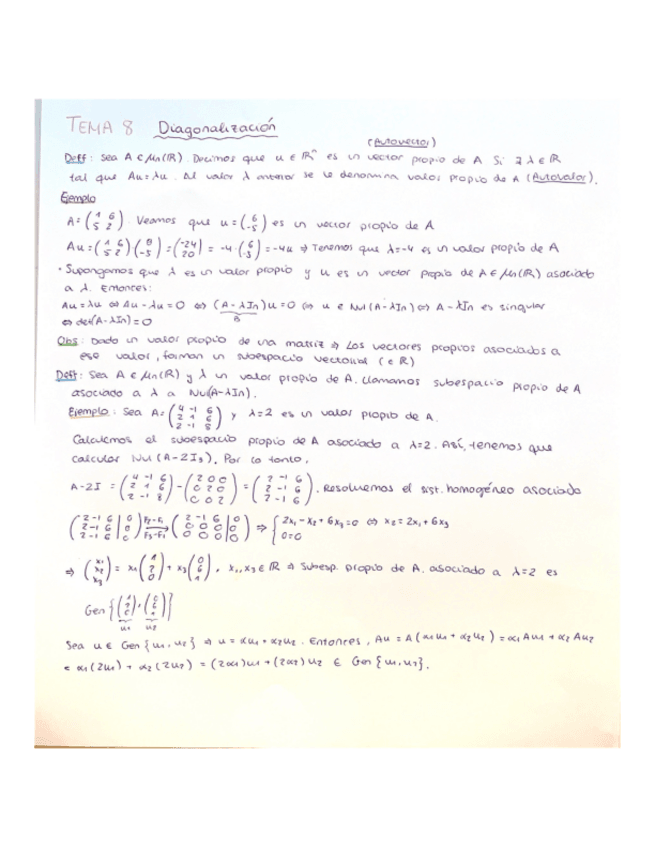 TEMA 8 Diagonalización
(Autovector)
Deff: Sea A ∈ Mn(ℝ). Decimos que u ∈ ℝⁿ es un vector propio de A si ∃ λ ∈ ℝ
tal que Au=λu. Al valor λ anterior se le denomina valor propio de A (Autovalor).
Ejemplo
A = (1 6; 5 2). Veamos que u = (6; -5) es un vector propio de A
Au = (1 6; 5 2)(6; -5) = (-24; 20) = -4·(6; -5) = -4u ⇒ Tenemos que λ=-4 es un valor propio de A
· Supongamos que λ es un valor propio y u es un vector propio de A ∈ Mn(ℝ) asociado
a λ. Entonces:
Au = λu ⇔ Au - λu = 0 ⇔ (A - λIn)u = 0 ⇔ u ∈ Nul(A - λIn) ⇔ A - λIn es singular
B
⇔ det(A - λIn) = 0
Obs: Dado un valor propio de una matriz ⇒ Los vectores propios asociados a
ese valor, forman un subespacio vectorial (∈ ℝ)
Deff: Sea A ∈ Mn(ℝ) y λ un valor propio de A. Llamamos subespacio propio de A
asociado a λ a Nul(A-λIn).
Ejemplo: Sea A = (4 -1 6; 2 1 6; 2 -1 8) y λ=2 es un valor propio de A.
Calculemos el subespacio propio de A asociado a λ=2. Así, tenemos que
calcular Nul (A-2I₃). Por lo tanto,
A-2I = (4 -1 6; 2 1 6; 2 -1 8) - (2 0 0; 0 2 0; 0 0 2) = (2 -1 6; 2 -1 6; 2 -1 6). Resolvemos el sist. homogéneo asociado
(2 -1 6 | 0; 2 -1 6 | 0; 2 -1 6 | 0) F₂-F₁ F₃-F₁ → (2 -1 6 | 0; 0 0 0 | 0; 0 0 0 | 0) ⇒ { 2x₁ - x₂ + 6x₃ = 0 ⇔ x₂ = 2x₁ + 6x₃
0=0
⇒ (x₁; x₂; x₃) = x₁(1; 2; 0) + x₃(0; 6; 1), x₁, x₃ ∈ ℝ ⇒ Subesp. propio de A. asociado a λ=2 es
Gen {(1; 2; 0), (0; 6; 1)}
u₁ u₂
Sea u ∈ Gen {u₁, u₂} ⇒ u = α₁u₁ + α₂u₂. Entonces, Au = A(α₁u₁ + α₂u₂) = α₁Au₁ + α₂Au₂
= α₁(2u₁) + α₂(2u₂) = (2α₁)u₁ + (2α₂)u₂ ∈ Gen {u₁, u₂}.